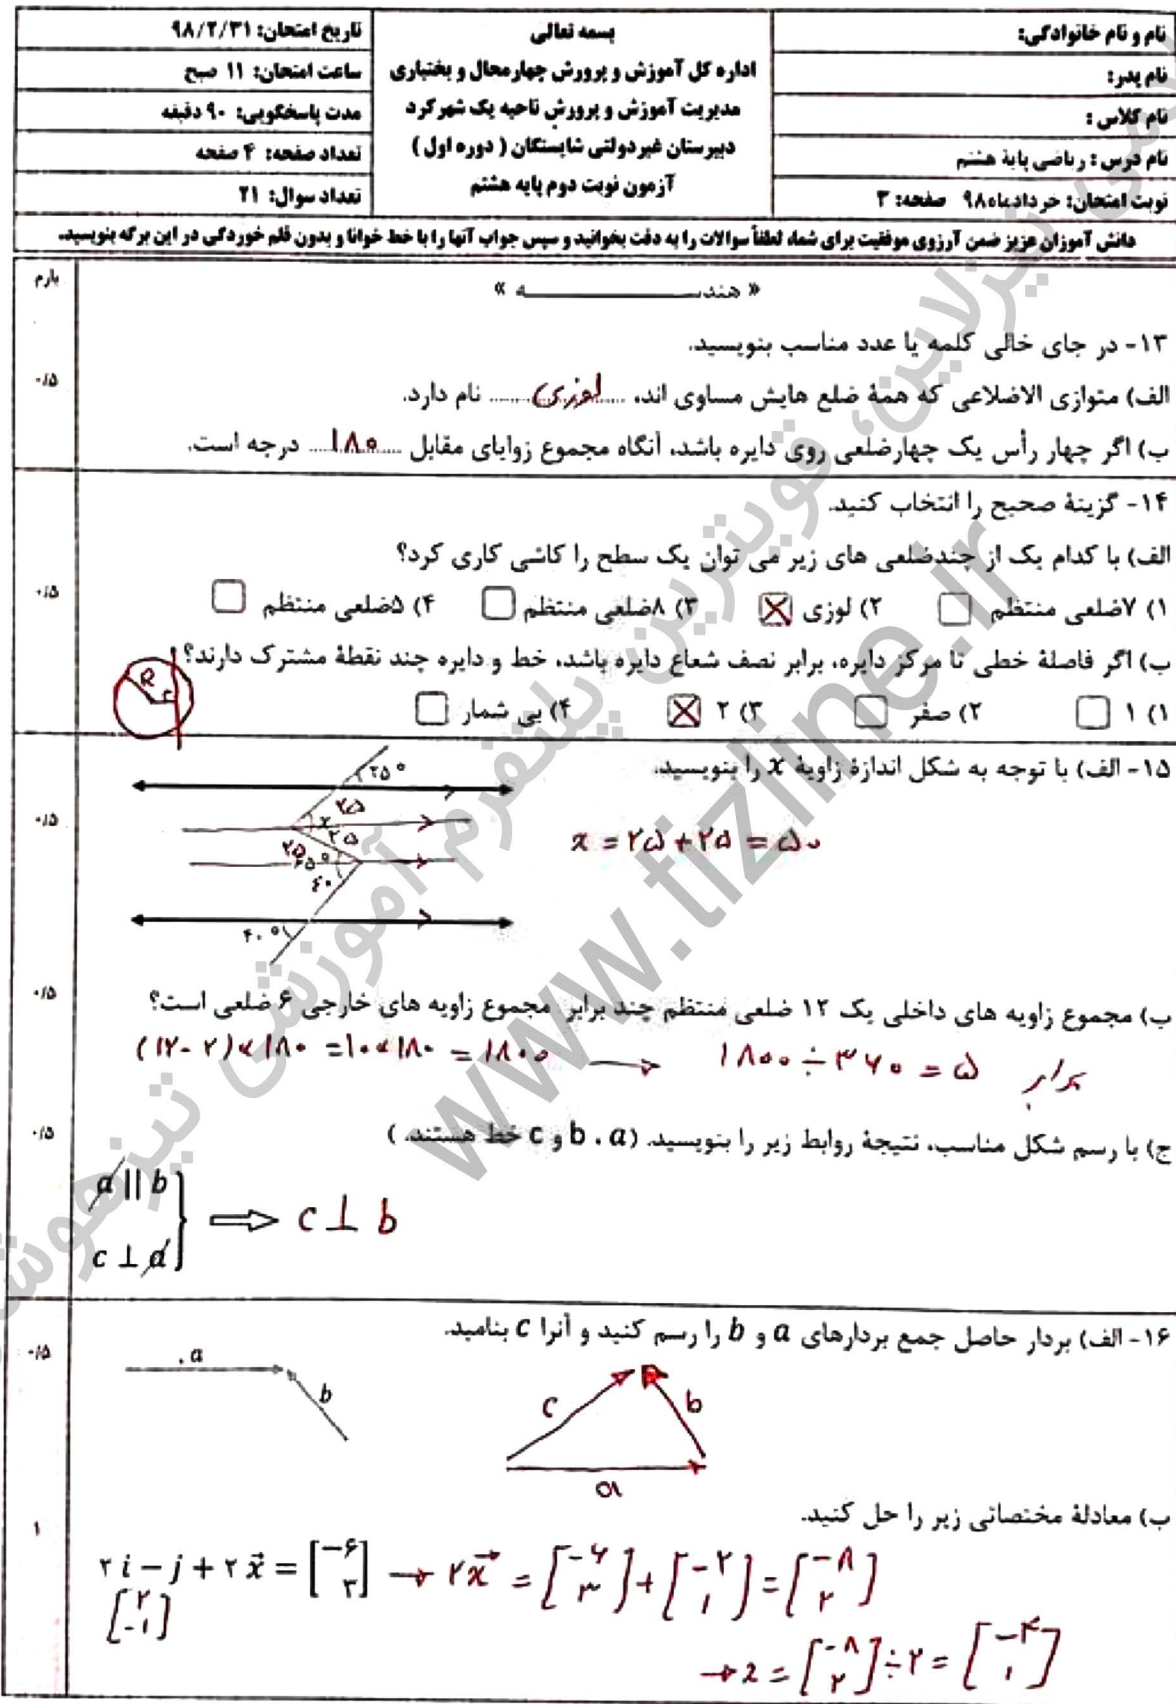 نام و نام خانوادگی:
نام پدر:
نام کلاس :
نام درس : ریاضی پایهٔ هشتم
نوبت امتحان: خردادماه ۹۸ صفحه: ۳
بسمه تعالی
اداره کل آموزش و پرورش چهارمحال و بختیاری
مدیریت آموزش و پرورش ناحیه یک شهرکرد
دبیرستان غیردولتی شایستگان ( دوره اول )
آزمون نوبت دوم پایه هشتم
تاریخ امتحان: ۹۸/۲/۳۱
ساعت امتحان: ۱۱ صبح
مدت پاسخگویی: ۹۰ دقیقه
تعداد صفحه: ۴ صفحه
تعداد سوال: ۲۱
دانش آموزان عزیز ضمن آرزوی موفقیت برای شما، لطفاً سوالات را به دقت بخوانید و سپس جواب آنها را با خط خوانا و بدون قلم خوردگی در این برگه بنویسید.
بارم
« هندســـــــــه »
۱۳- در جای خالی کلمه یا عدد مناسب بنویسید.
الف) متوازی الاضلاعی که همهٔ ضلع هایش مساوی اند، ..... لوزی ..... نام دارد. ۰/۵
ب) اگر چهار رأس یک چهارضلعی روی دایره باشد، آنگاه مجموع زوایای مقابل ..... ۱۸۰ ..... درجه است.
۱۴- گزینهٔ صحیح را انتخاب کنید.
الف) با کدام یک از چندضلعی های زیر می توان یک سطح را کاشی کاری کرد؟
۱) ۷ضلعی منتظم ۲) لوزی ۳) ۸ضلعی منتظم ۴) ۵ضلعی منتظم ۰/۵
ب) اگر فاصلهٔ خطی تا مرکز دایره، برابر نصف شعاع دایره باشد، خط و دایره چند نقطهٔ مشترک دارند؟
R r
۱) ۱ ۲) صفر ۳) ۲ ۴) بی شمار
۱۵- الف) با توجه به شکل اندازهٔ زاویهٔ x را بنویسید.
۲۵°
۲۵
x
۲۵
۲۵
۶۵°
۴۰
۴۰°
x = ۲۵ + ۲۵ = ۵۰ ۰/۵
ب) مجموع زاویه های داخلی یک ۱۲ ضلعی منتظم چند برابر مجموع زاویه های خارجی ۶ ضلعی است؟ ۰/۵
(۱۲-۲)×۱۸۰ = ۱۰×۱۸۰ = ۱۸۰۰ → ۱۸۰۰ ÷ ۳۶۰ = ۵ برابر
ج) با رسم شکل مناسب، نتیجهٔ روابط زیر را بنویسید. (b ، a و c خط هستند. ) ۰/۵
a || b
c ⊥ a
⇒ c ⊥ b
۱۶- الف) بردار حاصل جمع بردارهای a و b را رسم کنید و آنرا c بنامید. ۰/۵
a
b
c
b
a
ب) معادلهٔ مختصاتی زیر را حل کنید. ۱
۲ i − j + ۲ x⃗ = [−۶ ۳] → ۲x⃗ = [−۶ ۳] + [−۲ ۱] = [−۸ ۲]
[۲ −۱]
→ x = [−۸ ۲] ÷ ۲ = [−۴ ۱]
www.tizline.ir
تیزلاین، قویترین پلتفرم آموزشی تیزهوشان